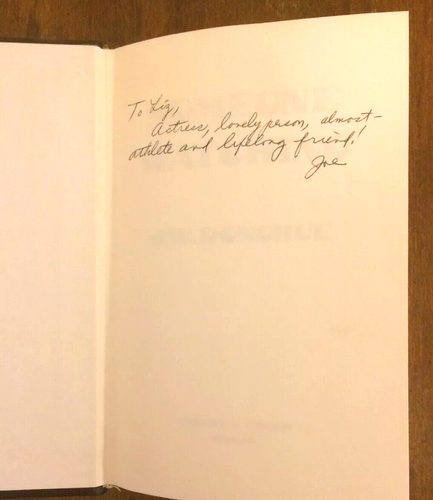 To Liz,
Actress, lovely person, almost-
athlete and lifelong friend!
Joe